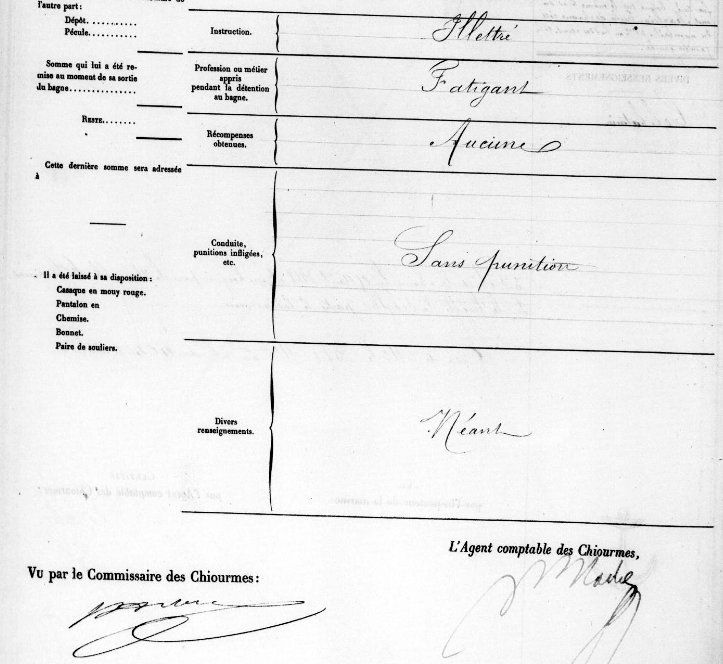 l'autre part:
Dépôt...........
Pécule...........
Somme qui lui a été re-
mise au moment de sa sortie
du bagne..............
RESTE........
Cette dernière somme sera adressée
à
Il a été laissé à sa disposition :
Casaque en mouy rouge.
Pantalon en
Chemise.
Bonnet.
Paire de souliers.
Instruction.
Illettré
Profession ou métier
appris
pendant la détention
au bagne.
Fatigant
Récompenses
obtenues.
Aucune
Conduite,
punitions infligées,
etc.
Sans punition
Divers
renseignements.
Néant
L'Agent comptable des Chiourmes,
Vu par le Commissaire des Chiourmes :